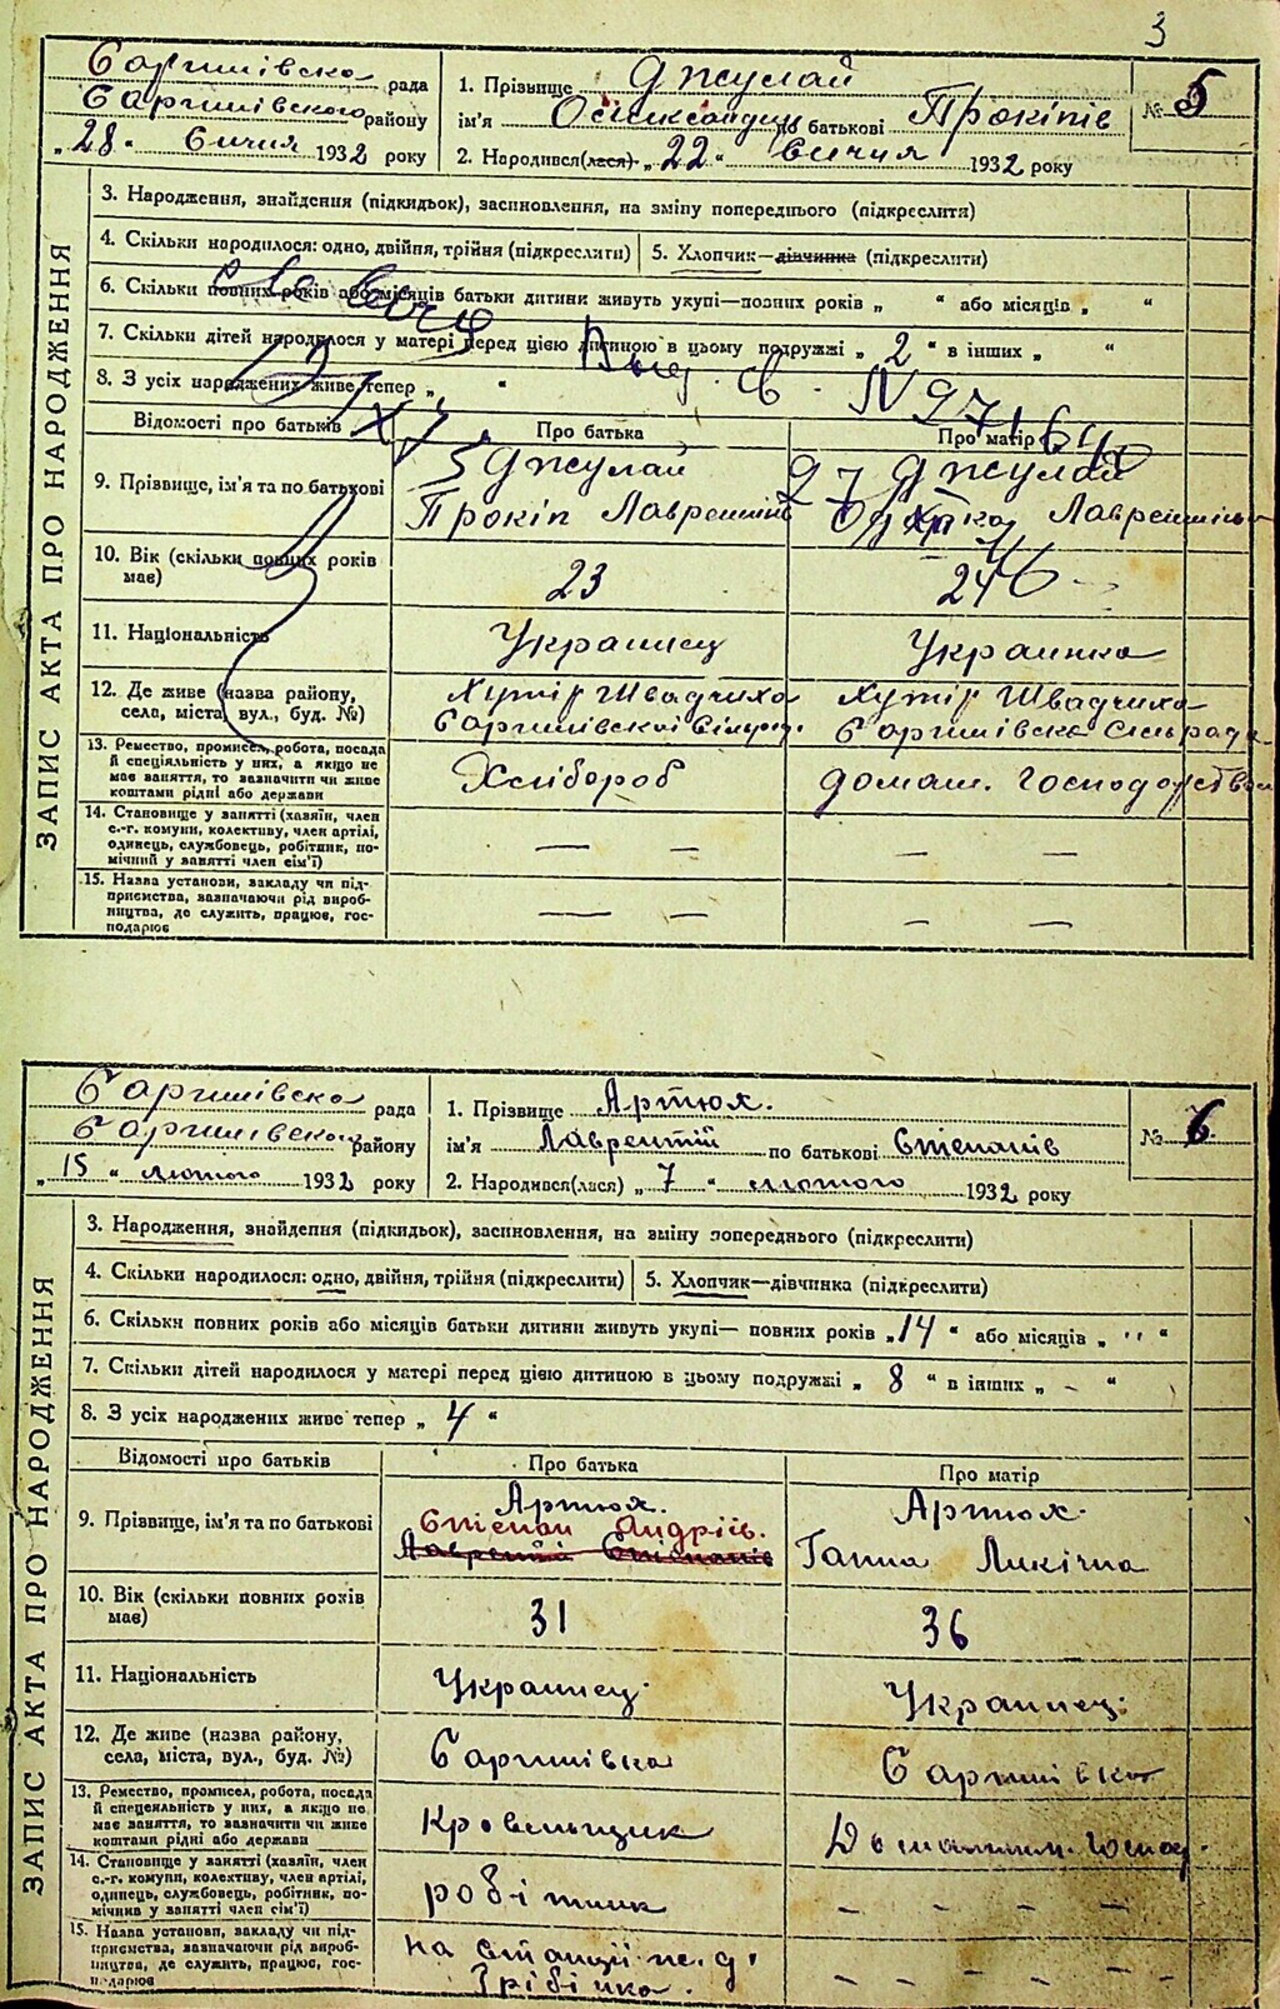 3
Сотниківска рада
району
"28" Січня 1932 року
1. Прізвище Джулай
ім'я Олександер по батькові Прокіпів
2. Народився(лася) "22" Січня 1932 року
№ 5
ЗАПИС АКТА ПРО НАРОДЖЕННЯ
3. Народження, знайдення (підкидьок), засиновлення, на зміну попереднього (підкреслити)
4. Скільки народилося: одно, двійня, трійня (підкреслити)
5. Хлопчик—дівчинка (підкреслити)
6. Скільки повних років або місяців батьки дитини живуть укупі—повних років „ “ або місяців „ “
7. Скільки дітей народилося у матері перед цією дитиною в цьому подружжі „ 2 “ в інших „ “
8. З усіх народжених живе тепер „ “
Відомості про батьків
Про батька
Про матір
9. Прізвище, ім'я та по батькові
Джулай
Прокіп Лаврентіїв
Джулай
10. Вік (скільки повних років має)
23
24
11. Національність
Украинец
Украинка
12. Де живе (назва району, села, міста, вул., буд. №)
Хутір Швадчиха
Хутір Швадчиха
13. Ремество, промисел, робота, посада
й спеціяльність у них, а якщо не
має заняття, то зазначити чи живе
коштами рідні або держави
Хлібороб
домаш. Господорство
14. Становище у занятті (хазяїн, член
с.-г. комуни, колективу, член артілі,
одинець, службовець, робітник, по-
мічний у занятті член сім'ї)
— —
— —
15. Назва установи, закладу чи під-
приємства, зазначаючи рід вироб-
ництва, де служить, працює, гос-
подарює
— —
— —
рада
району
"15" лютого 1932 року
1. Прізвище Артюх.
ім'я Лаврентій по батькові Степанів
2. Народився(лася) „ 7 “ лютого 1932 року
№ 6.
ЗАПИС АКТА ПРО НАРОДЖЕННЯ
3. Народження, знайдення (підкидьок), засиновлення, на зміну попереднього (підкреслити)
4. Скільки народилося: одно, двійня, трійня (підкреслити)
5. Хлопчик—дівчинка (підкреслити)
6. Скільки повних років або місяців батьки дитини живуть укупі— повних років „14“ або місяців „ “
7. Скільки дітей народилося у матері перед цією дитиною в цьому подружжі „ 8 “ в інших „ - “
8. З усіх народжених живе тепер „ 4 “
Відомості про батьків
Про батька
Про матір
9. Прізвище, ім'я та по батькові
Артюх.
Степан Андріїв.
Лаврентій Степанів
Артюх.
Ганна Микічна
10. Вік (скільки повних років має)
31
36
11. Національність
Украинец.
Украинец.
12. Де живе (назва району, села, міста, вул., буд. №)
13. Ремество, промисел, робота, посада
й спецеяльність у них, а якщо не
має заняття, то зазначити чи живе
коштами рідні або держави
Кровельщик
Домашн. Господ.
14. Становище у занятті (хазяїн, член
с.-г. комуни, колективу, член артілі,
одинець, службовець, робітник, по-
мічник у занятті член сім'ї)
робітник
- - - - -
15. Назва установи, закладу чи під-
приємства, зазначаючи рід вироб-
ництва, де служить, працює, гос-
подарює
на станції ж. д.
Грібінка.
- - - - - -